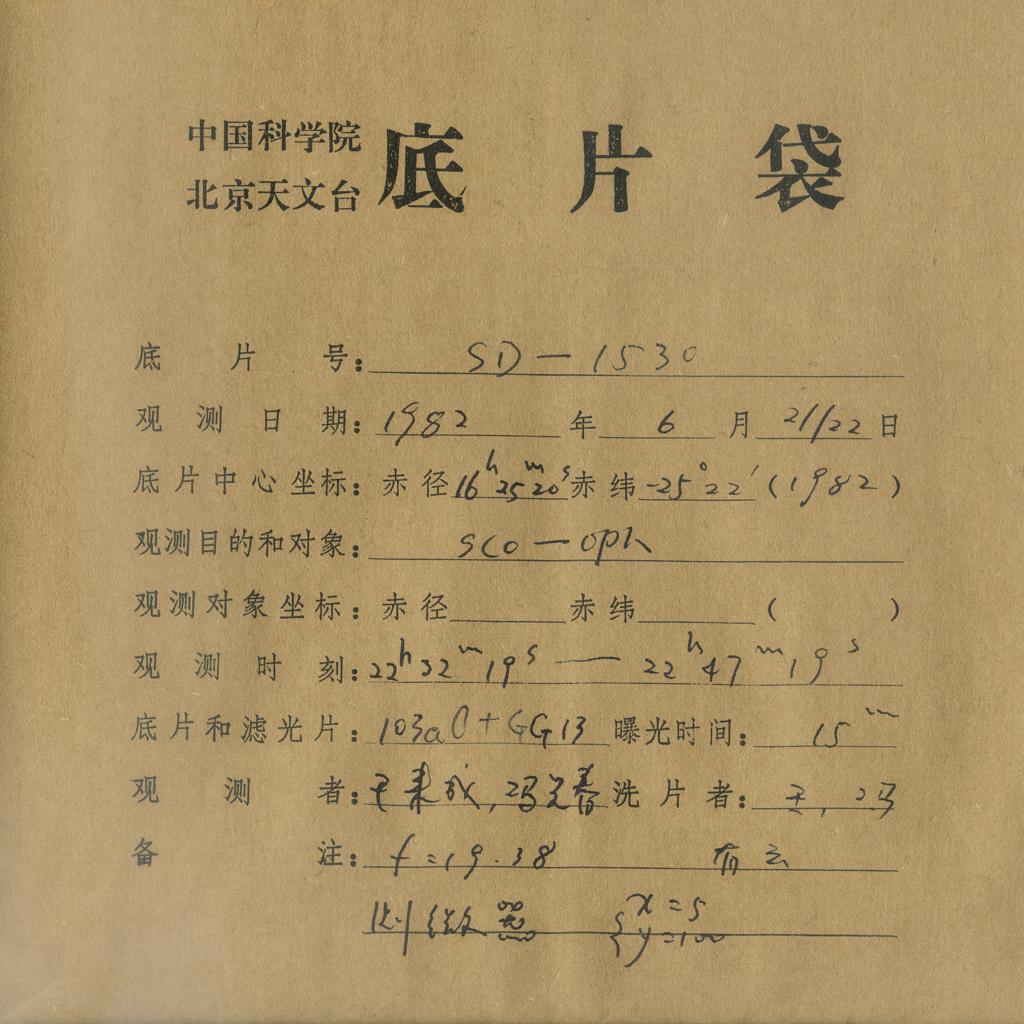 中国科学院
北京天文台
底片袋
底片号: SD—1530
观测日期: 1982年6月21/22日
底片中心坐标: 赤径16h25m20s赤纬-25°22′(1982)
观测目的和对象: Sco—Oph
观测对象坐标: 赤径 赤纬 ( )
观测时刻: 22h32m19s——22h47m19s
底片和滤光片: 103aO+GG13 曝光时间: 15m
观测者: 来成, 冯 春 洗片者: 王, 冯
备注: f=19.38 有云
测微器 { x=5
y=100